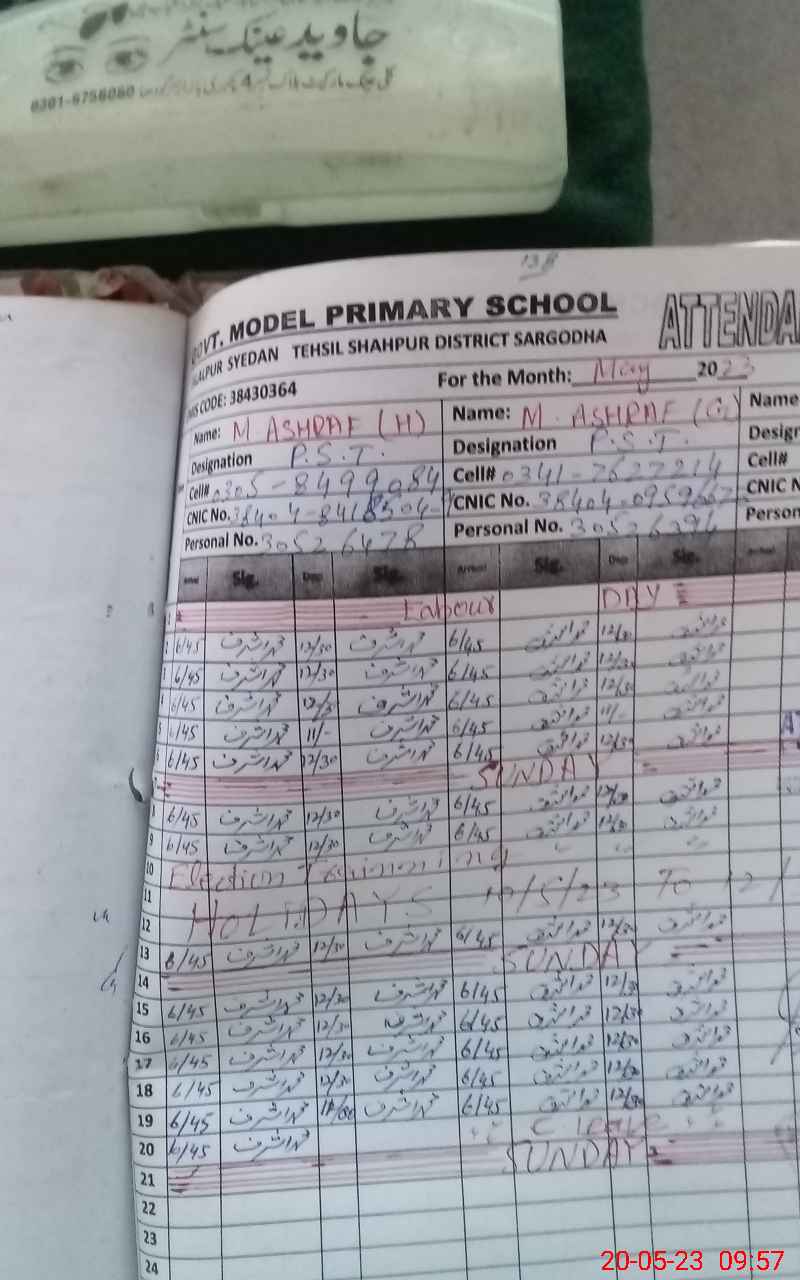 جاوید عینک سنٹر
0301-6756060
138
GOVT. MODEL PRIMARY SCHOOL ATTENDA
ALPUR SYEDAN TEHSIL SHAHPUR DISTRICT SARGODHA
MIS CODE: 38430364 For the Month: May 2023
Name: M ASHRAF (H) Name: M. ASHRAF (G) Name
Designation P.S.T. Designation P.S.T. Design
Cell# 0305-8499084 Cell# 0341-7627214 Cell#
CNIC No. 38404-8418504- CNIC No. 38404-095966 CNIC N
Personal No. 30526478 Personal No. 30526396 Person
Sig. Dep Sig. Arrival Sig. Dep Sig. Arrival
1 Labour DAY
2 6/45 محمد اشرف 12/30 محمد اشرف 6/45 محمد اشرف 12/30 محمد اشرف
3 6/45 محمد اشرف 12/30 محمد اشرف 6/45 محمد اشرف 12/30 محمد اشرف
4 6/45 محمد اشرف 12/30 محمد اشرف 6/45 محمد اشرف 12/30 محمد اشرف
5 6/45 محمد اشرف 11/- محمد اشرف 6/45 محمد اشرف 11/- محمد اشرف
6 6/45 محمد اشرف 12/30 محمد اشرف 6/45 محمد اشرف 12/30 محمد اشرف
7 SUNDAY
8 6/45 محمد اشرف 12/30 محمد اشرف 6/45 محمد اشرف 12/30 محمد اشرف
9 6/45 محمد اشرف 12/30 محمد اشرف 6/45 محمد اشرف 12/30 محمد اشرف
10 Election Trainning
11 HOLIDAYS 10/5/23 TO 12/
12
13 6/45 محمد اشرف 12/30 محمد اشرف 6/45 محمد اشرف 12/30 محمد اشرف
14 SUNDAY
15 6/45 محمد اشرف 12/30 محمد اشرف 6/45 محمد اشرف 12/30 محمد اشرف
16 6/45 محمد اشرف 12/30 محمد اشرف 6/45 محمد اشرف 12/30 محمد اشرف
17 6/45 محمد اشرف 12/30 محمد اشرف 6/45 محمد اشرف 12/30 محمد اشرف
18 6/45 محمد اشرف 12/30 محمد اشرف 6/45 محمد اشرف 12/30 محمد اشرف
19 6/45 محمد اشرف محمد اشرف 6/45 محمد اشرف 12/30 محمد اشرف
20 6/45 محمد اشرف C. leave
21 SUNDAY
22
23
24
20-05-23 09:57